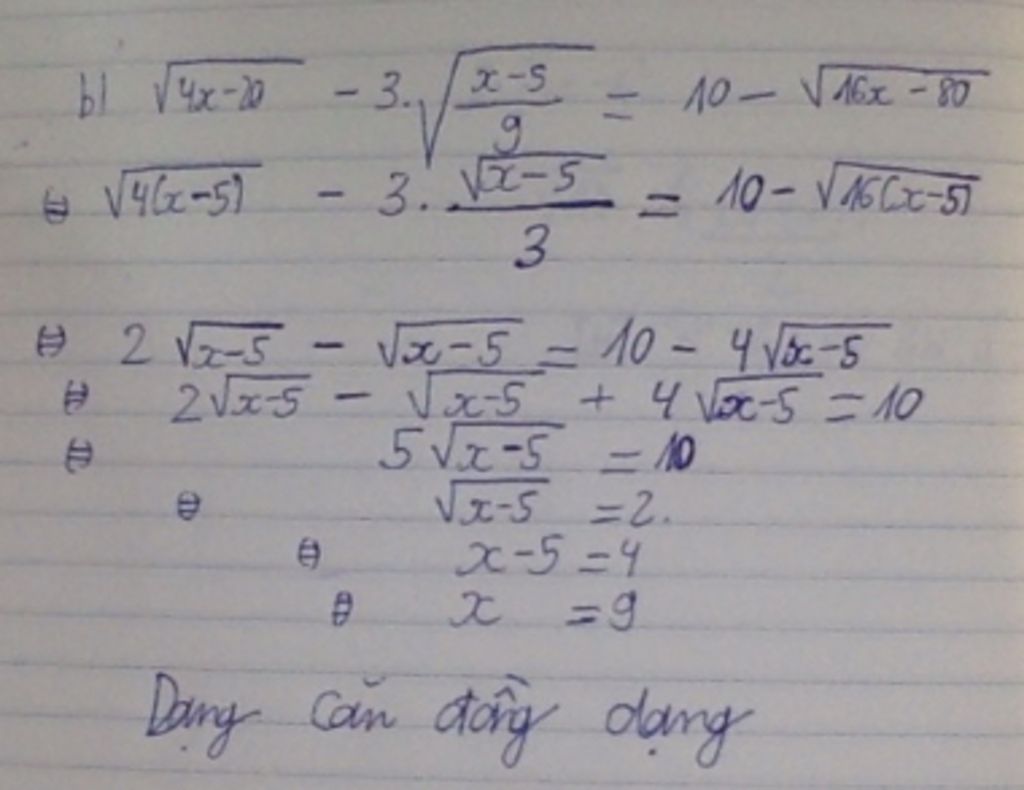 b) √(4x-20) - 3.√((x-5)/9) = 10 - √(16x-80)
⇔ √(4(x-5)) - 3.√(x-5)/3 = 10 - √(16(x-5))
⇔ 2√(x-5) - √(x-5) = 10 - 4√(x-5)
⇔ 2√(x-5) - √(x-5) + 4√(x-5) = 10
⇔ 5√(x-5) = 10
⇔ √(x-5) = 2.
⇔ x-5 = 4
⇔ x = 9
Dạng căn đồng dạng